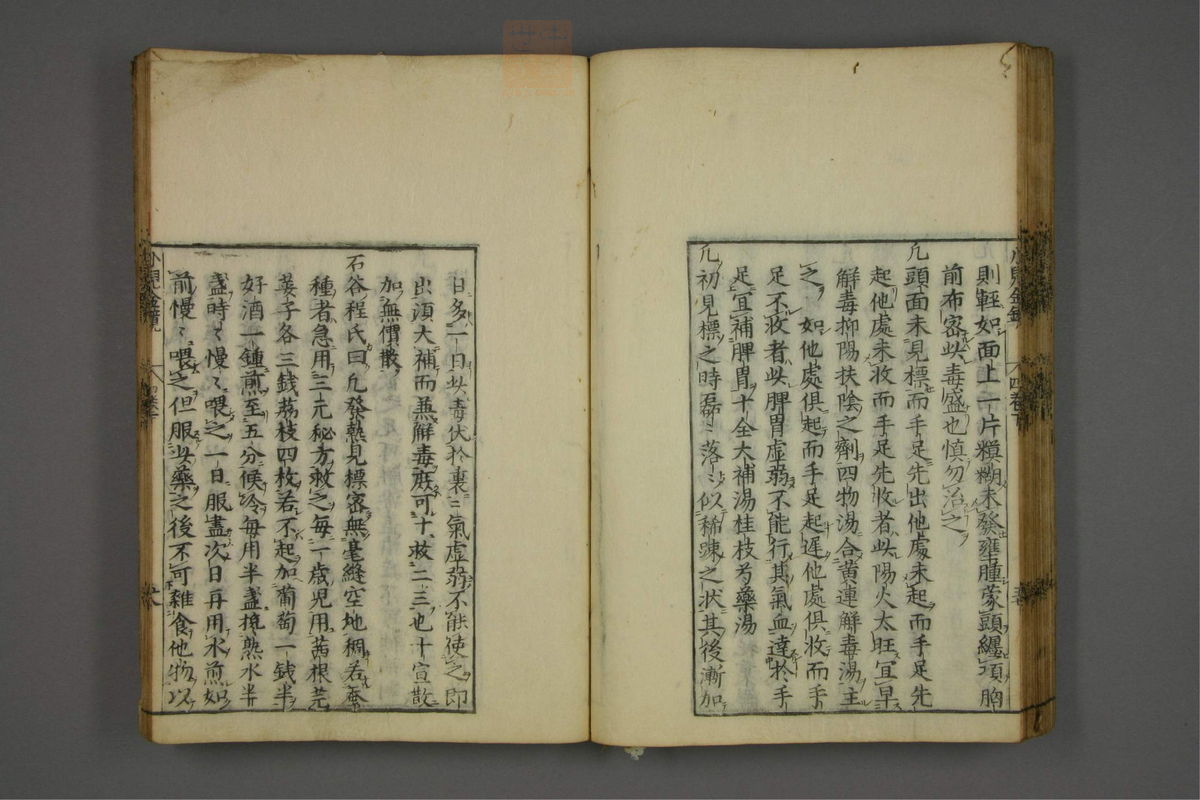 則輕如面上一片糢糊未發壅腫蒙頭纏項胸
前布密此毒盛也慎勿治之
凡頭面未見標而手足先出他處未起而手足先
起他處未收而手足先收者此陽火太旺宜早
解毒抑陽扶陰之劑四物湯合黄連解毒湯主
之如他處俱起而手足起遲他處俱收而手
足不收者此脾胃虛弱不能行其氣血達於手
足宜補脾胃十全大補湯桂枝芍藥湯
凡初見標之時磊〻落〻似稀踈之狀其後漸加
日多一日此毒伏於裏〻氣虛弱不能使之即
出須大補而兼解毒庶可十救二三也十宣散
加無價散
石谷程氏曰凡發熱見標密無毫縫空地稠若蚕
種者急用三元秘方救之每一歳児用茜根芫
荽子各三錢荔枝四枚若不起加葡萄一錢半
好酒一鍾煎至五分候冷每用半盞攙熟水半
盞時〻慢〻喂之一日服盡次日再用水煎如
前慢〻喂之但服此藥之後不可雜食他物以